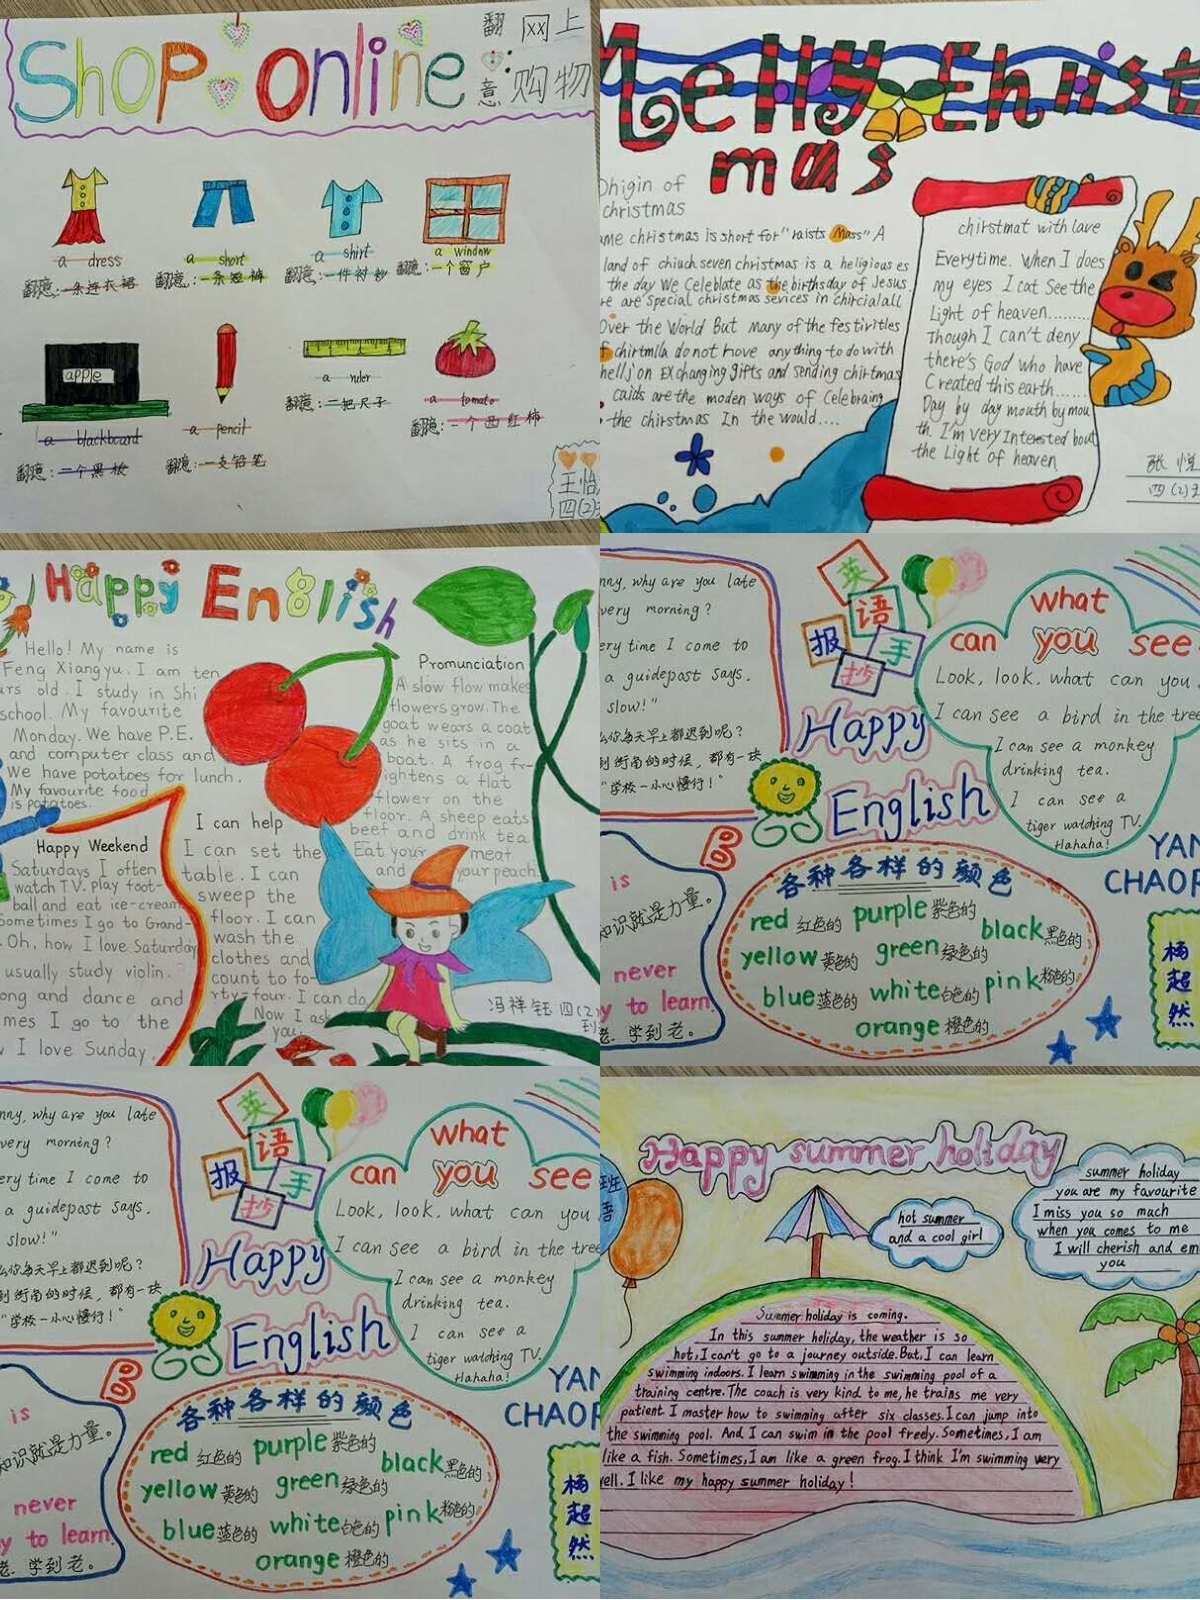 Shop online
翻意
网上
购物
a dress
翻意:一条连衣裙
a short
翻意:一条短裤
a shirt
翻意:一件衬衫
a window
翻意:一个窗户
apple
a blackboard
翻意:一个黑板
a pencil
翻意:一支铅笔
a ruler
翻意:二把尺子
a tomato
翻意:一个西红柿
王怡
四(2)
Melly Christ
mas
Ohigin of
christmas
ame christmas is short for "raists Mass" A
land of chiuch seven christmas is a heligious es
the day We Celeblate as the birthsday of Jesus.
re are special christmas sevices in chircialall
Over the World But many of the festivitles
f chirtmlla do not hove anything to do with
hellj'on EXchanging gifts and sending chirtmas
caids are the moden ways of Celebraing
the chirstmas In the would....
chirstmat with lave
Everytime. When I does
my eyes I cat See the
Light of heaven.........
Though I can't deny
there's God who have
Created this earth.......
Day by day mouth by mou
th. I'm very Interested bout
the Light of heaven
张悦
四(2)
Happy English
Hello! My name is
Feng Xiangyu. I am ten
ars old. I study in Shi
school. My favourite
Monday. We have P.E.
and computer class and
We have potatoes for lunch.
My favourite food
is potatoes.
Happy Weekend
Saturdays I often
watch TV. play foot-
ball and eat ice-cream
Sometimes I go to Grand-
Oh, how I love Saturday
usually study violin.
ong and dance and
mes I go to the
I love Sunday.
I can help
I can set the
table. I can
sweep the
floor. I can
wash the
clothes and
count to fo-
rty-four. I can do
Now I ask
you.
Promunciation
A slow flow makes
flowers grow. The
goat wears a coat
as he sits in a
boat. A frog fr-
ightens a flat
flower on the
floor. A sheep eats
beef and drink tea
Eat your meat
and your peach.
冯祥钰 四(2)
班
nny, why are you late
very morning?
ery time I come to
a guidepost says.
slow!"
么你每天早上都迟到呢?
到街南的时候,都有一块
"学校-小心慢行!"
英语报手抄
Happy
English
what
can you see
Look, look. what can you
I can see a bird in the tree
I can see a monkey
drinking tea.
I can see a
tiger watching TV.
Hahaha!
B
is
知识就是力量。
never
y to learn.
老.学到老。
各种各样的颜色
red 红色的 purple 紫色的
black 黑色的
yellow 黄色的 green 绿色的
blue 蓝色的 white 白色的 pink 粉色的
orange 橙色的
YAN
CHAOR
杨超然
nny, why are you late
very morning?
ery time I come to
a guidepast says.
slow!"
么你每天早上都迟到呢?
到街南的时候,都有一块
"学校-小心慢行!"
英语报手抄
Happy
English
what
can you see
Look, look. what can you
I can see a bird in the tree
I can see a monkey
drinking tea.
I can see a
tiger watching TV.
Hahaha!
B
is
知识就是力量。
never
y to learn
老.学到老。
各种各样的颜色
red 红色的 purple 紫色的
black 黑色的
yellow 黄色的 green 绿色的
blue 蓝色的 white 白色的 pink 粉色的
orange 橙色的
YAN
CHAOR
杨超然
Happy summer holiday
班
语
hot summer
and a cool girl
summer holiday
you are my favourite
I miss you so much
when you comes to me
I will cherish and em
you
Summer holiday is coming.
In this summer holiday, the weather is so
hot, I can't go to a journey outside. But, I can learn
swimming indoors. I learn swimming in the swimming pool of a
training centre. The coach is very kind to me, he trains me very
patient. I master how to swimming after six classes. I can jump into
the swimming pool. And I can swim in the pool freely. Sometimes, I am
like a fish. Sometimes, I am like a green frog. I think I'm swimming very
ell. I like my happy summer holiday!